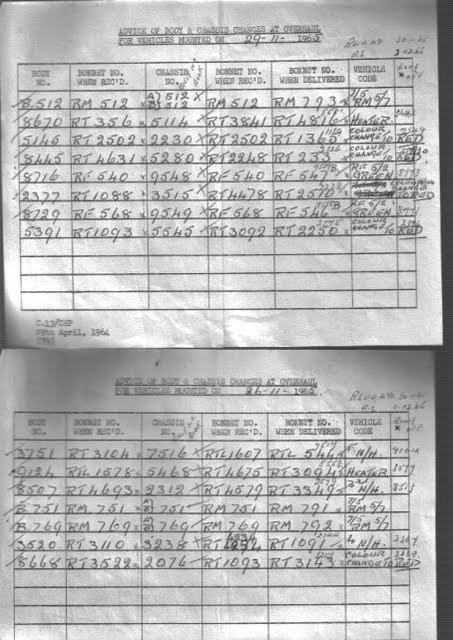 ADVICE OF BODY & CHASSIS CHANGES AT OVERHAUL
FOR VEHICLES MOUNTED ON 29-11-1965
BODY NO. BONNET NO. WHEN REC'D. CHASSIS NO. BONNET NO. WHEN REC'D. BONNET NO. WHEN DELIVERED VEHICLE CODE
B.512 RM 512 A) 512 B) 512 RM 512 RM 793 7/5 RM 5/7
8670 RT 356 5114 RT3841 RT 4816 HEATER
5146 RT 2502 2230 RT 2502 RT 1365 COLOUR CHANGE TO RED
8445 RT 4631 5280 RT 2248 RT 233 COLOUR CHANGE TO RED
8716 RF 540 9548 RF 540 RF 547 RF 5/2 GREEN
2377 RT1088 3515 RT4478 RT 2570 RED
8729 RF 568 9549 RF 568 RF 546 RF 6/2 GREEN
5391 RT1093 5545 RT3092 RT 2250 COLOUR CHANGE TO RED
C.13/CHP
April, 1964
ADVICE OF BODY & CHASSIS CHANGES AT OVERHAUL
FOR VEHICLES MOUNTED ON 26-11-1965
BODY NO. BONNET NO. WHEN REC'D. CHASSIS NO. BONNET NO. WHEN REC'D. BONNET NO. WHEN DELIVERED VEHICLE CODE
3751 RT 3104 7516 RTL1607 RTL 544 N/H.
9124 RTL 1578 5468 RT4675 RT 3094 HEATER
8507 RT4693 9312 RT4579 RT 3349 N/H.
B.751 RM 751 A) B) 751 RM 751 RM 791 7/5 RM 5/7
B.769 RM 769 A) B) 769 RM 769 RM 792 7/5 RM 5/7
3520 RT 3110 3238 RT 4294 RT1091 4 N/H.
8668 RT3522 2076 RT1093 RT 3143 COLOUR CHANGE TO RED